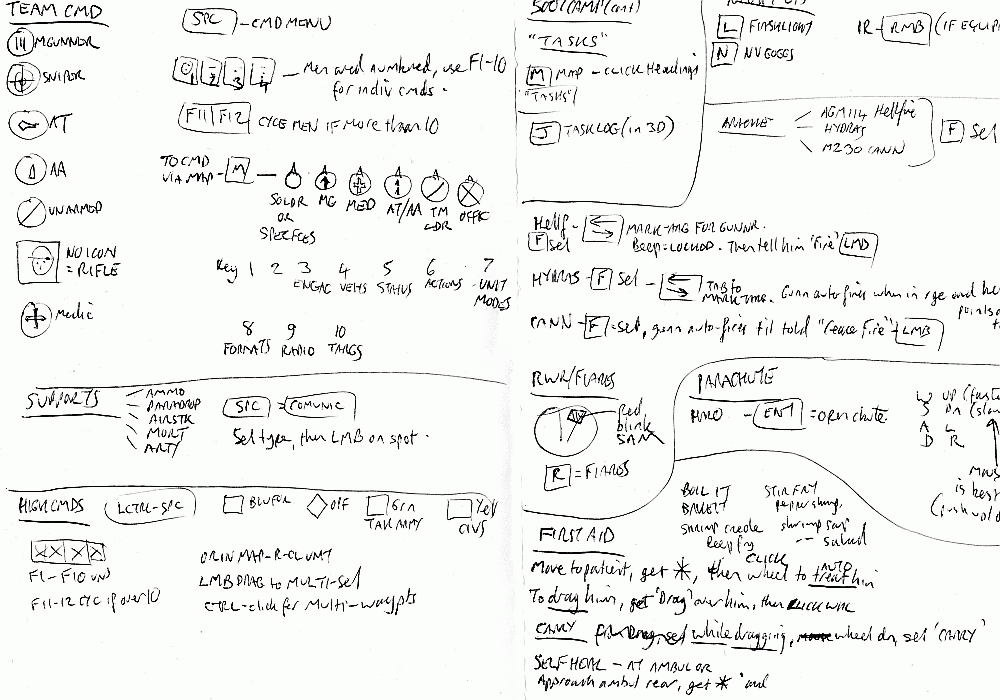 TEAM CMD
MGUNNER
SNIPER
AT
AA
UNARMED
NO ICON
= RIFLE
Medic
SPC - CMD MENU
1 2 3 4 - Men are numbered, use F1-10
for indiv cmds.
F11 F12 CYCLE MEN IF more than 10
TO CMD
VIA MAP - M -
SOLDR MG MED AT/AA TM OFFIC
OR LDR
SPECFCS
Key 1 2 3 4 5 6 7
ENGAG VEHS STATUS ACTIONS UNIT
MODES
8 9 10
FORMATS RADIO TARGS
SUPPORTS
AMMO
PARADROP
AIRSTR
MORT
ARTY
SPC = COMUNIC
Sel type, then LMB on spot.
HIGH CMDS LCTRL-SPC
BLUFOR OPF Grn Yel
TAK ARMY CIVS
F1-F10 UNITS
F11-12 CYC IF over 10
OR IN MAP-R-CL UNIT
LMB DRAG to MULTI-sel
CTRL-click for Multi-waypts
BOOTCAMP (cont)
"TASKS"
M MAP - CLICK Headings
"TASKS"/
J TASK LOG (in 3D)
L FLASHLIGHT
N NV GOGGS
IR - RMB (IF EQUIP
APACHE
AGM 114 Hellfire
HYDRAS
M230 CANN
F Sel
Hellf -
F sel
MARK TARG FOR GUNNR.
Beep = LOCKED. Then tell him 'Fire' LMB
HYDRAS - F Sel -
TAB to
MARK TARG. Gunn auto fires when in rge and he
points
CANN - F = sel, gunn auto-fires til told "Cease Fire" LMB
RWR/FLARES
Red
blink
SAM
R = FLARES
PARACHUTE
HALO - ENT = OPEN chute
W UP (faste
S Dn (slow
A L
D R
Mous
is best
(push vol d
BOIL IT
BAKE IT
shrimp creole
deep fry
STIR FRY
pepper shrimp,
shrimp soup
-- salad
FIRST AID
CLICK AUTO
Move to patient, get *, then wheel to treat him
To drag him, get 'Drag' over him, then CLICK
CARRY while dragging, wheel dn, sel 'CARRY'
SELF HEAL - AT AMBUL OR
Approach ambul rear, get * and